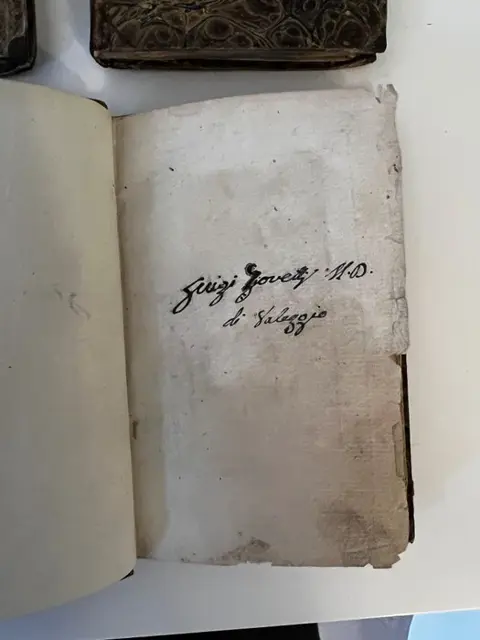 Luigi Zovetti M.D.
di Valeggio